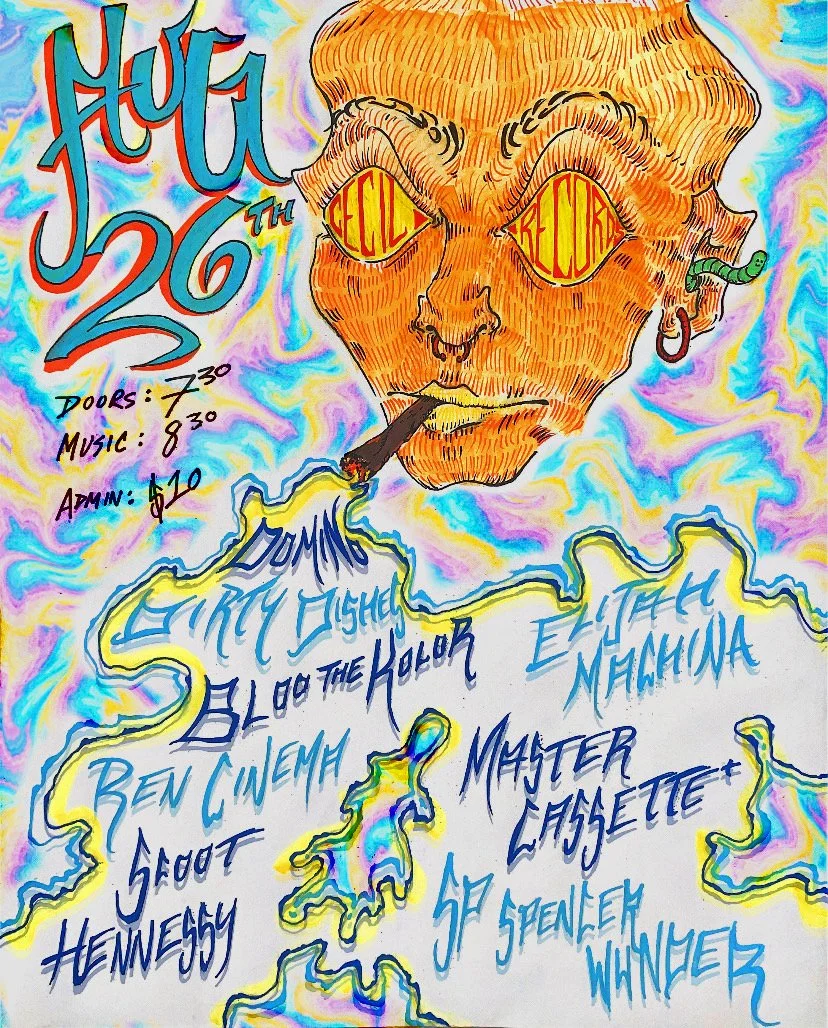 AUG
26TH
CECIL
RECORDS
DOORS: 7 30
MUSIC: 8 30
ADMIN: $10
DOMINO
DIRTY DISHES
BLOO THE KOLOR
REN CINEMA
SCOOT
HENNESSY
ELIJAH
MACHINA
MASTER
CASSETTE+
SP SPENCER
WUNDER